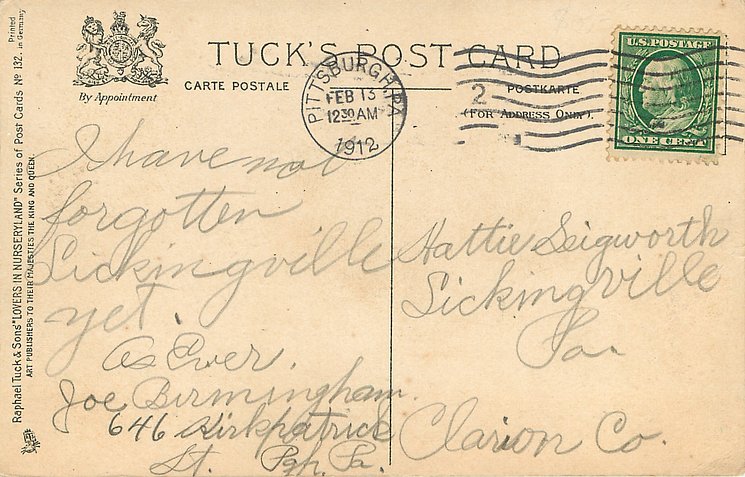 TUCK'S POST CARD
By Appointment
CARTE POSTALE
POSTKARTE
(FOR ADDRESS ONLY).
PITTSBURGH, PA
FEB 13
12 30 AM
1912
2
U.S. POSTAGE
ONE CENT
Printed in Germany
Raphael Tuck & Sons' "LOVERS IN NURSERYLAND" Series of Post Cards No 132.
ART PUBLISHERS TO THEIR MAJESTIES THE KING AND QUEEN.
I have not
forgotten
Sickingville
yet.
As Ever.
Joe Birmingham.
646 Kirkpatrick
St. Pgh. Pa.
Hattie Seigworth
Sickingville
Pa.
Clarion Co.